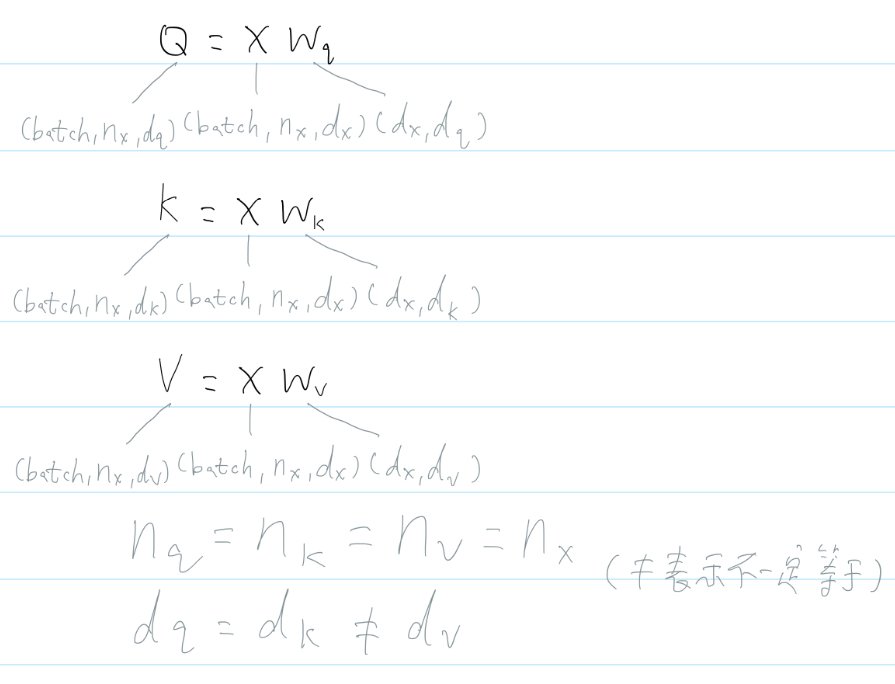 Q = X Wq
(batch, nx, dq) (batch, nx, dx) (dx, dq)
K = X Wk
(batch, nx, dk) (batch, nx, dx) (dx, dk)
V = X Wv
(batch, nx, dv) (batch, nx, dx) (dx, dv)
nq = nk = nv = nx (≠表示不一定等于)
dq = dk ≠ dv